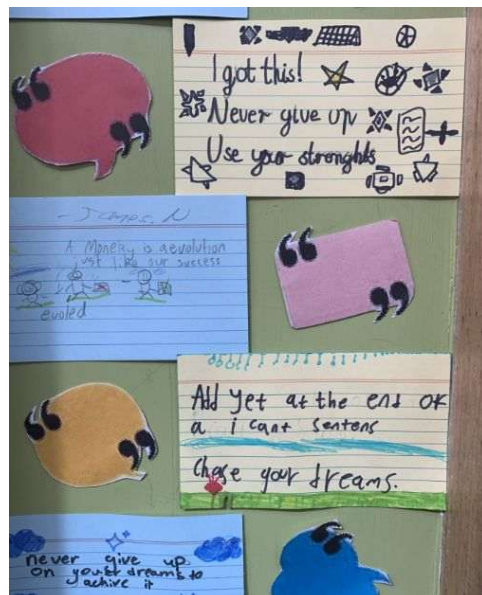 I got this!
Never give up
Use your strenghts
- James. N
A Moneky is aevolution
just like our success
evoled
Add yet at the end of
a i cant sentens
Chase your dreams.
never give up
on your dreams to
achive it